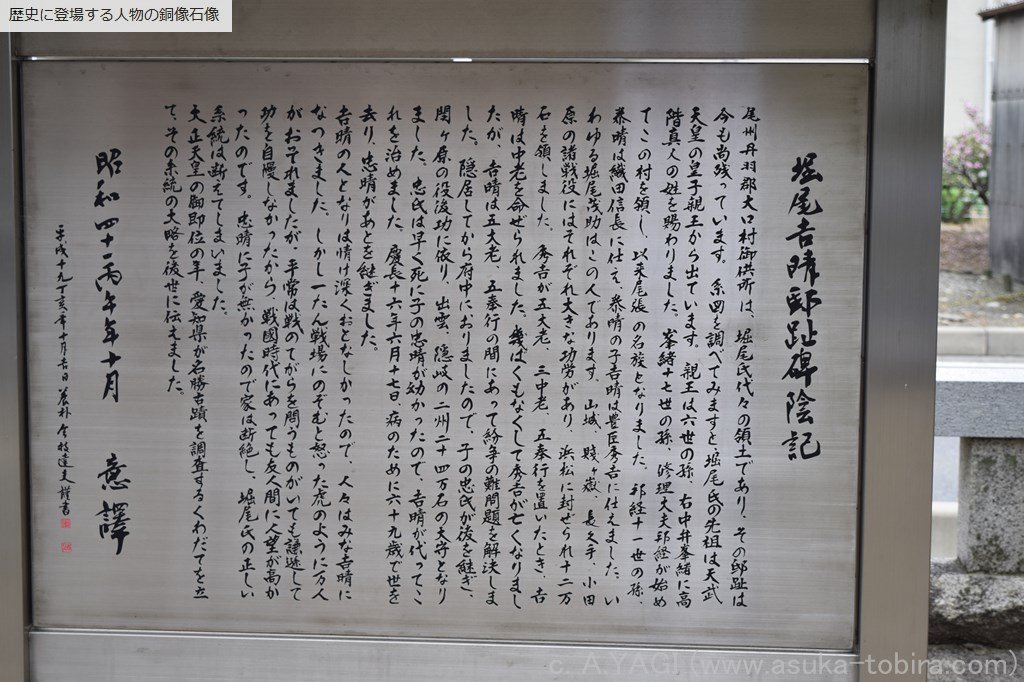 歴史に登場する人物の銅像石像
堀尾吉晴邸趾碑陰記
尾州丹羽郡大口村御供所は、堀尾氏代々の領土であり、その邸趾は
今も尚残っています。系図を調べてみますと、堀尾氏の先祖は天武
天皇の皇子親王から出ています。親王は六世の孫、右中弁峯緒に高
階真人の姓を賜わりました。峯緒十七世の孫、修理大夫邦経が始め
てこの村を領し、以来尾張の名族となりました。邦経十一世の孫、
泰晴は織田信長に仕え、泰晴の子吉晴は豊臣秀吉に仕えました。い
わゆる堀尾茂助はこの人であります。山城、賤ヶ嶽、長久手、小田
原の諸戦役にはそれぞれ大きな功労があり、浜松に封ぜられ十二万
石を領しました。秀吉が五大老、三中老、五奉行を置いたとき、吉
晴は中老を命ぜられました。幾ばくもなくして秀吉が亡くなりまし
たが、吉晴は五大老、五奉行の間にあって紛争の難問題を解決しま
した。隠居してから府中におりましたので、子の忠氏が後を継ぎ、
関ヶ原の役後功に依り、出雲、隠岐の二州二十四万石の大守となり
ました。忠氏は早く死に子の忠晴が幼かったので、吉晴が代ってこ
れを治めました。慶長十六年六月十七日、病のために六十九歳で世を
去り、忠晴があとを継ぎました。
吉晴の人となりは情け深くおとなしかったので、人々はみな吉晴に
なつきました。しかし一たん戦場にのぞむと怒った虎のように万人
がおそれましたが、平常は戦のてがらを問うものがいても謙遜して
功を自慢しなかったから、戦國時代にあっても友人間に人望が高か
ったのです。忠晴に子が無かったので家は断絶し、堀尾氏の正しい
系統は断えてしまいました。
大正天皇の御即位の年、愛知県が名勝古蹟を調査するくわだてを立
て、その系統の大略を後世に伝えました。
昭和四十一丙午年十月 意譯
平成十九丁亥年十月吉日
謹書
c. A.YAGI (www.asuka-tobira.com)